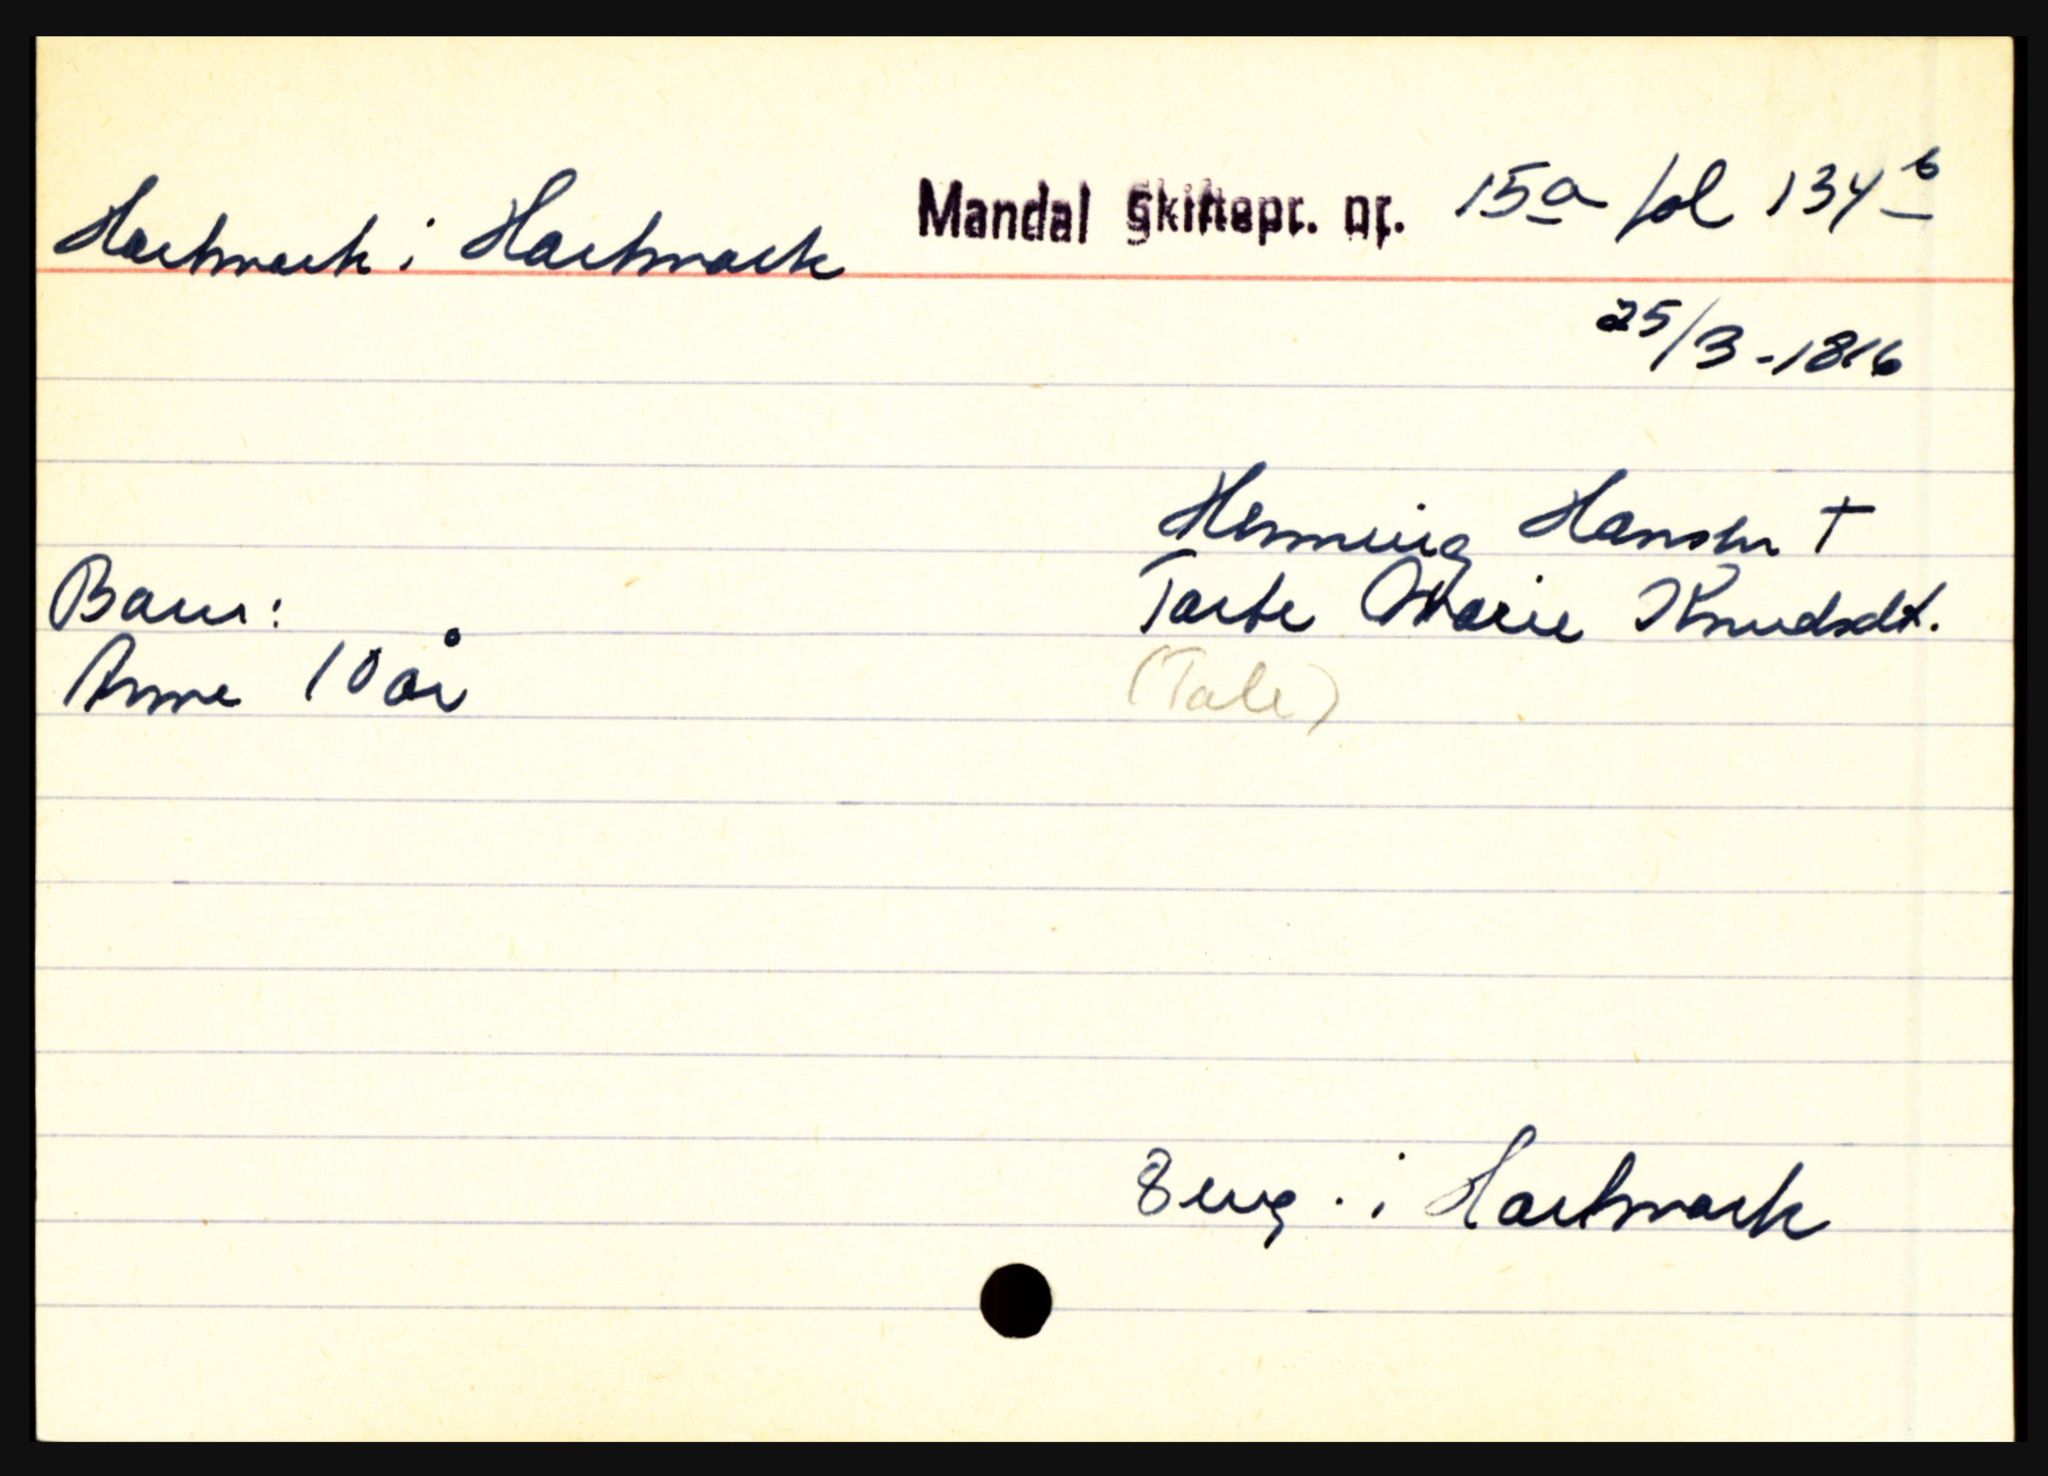 Hartmark i Hartmark Mandal Skiftepr. nr. 15a fol 134b
25/3-1816
Henning Hansen †
Barn: Tarte Marie Knudsdt.
Anne 10 år (Tale)
i Hartmark